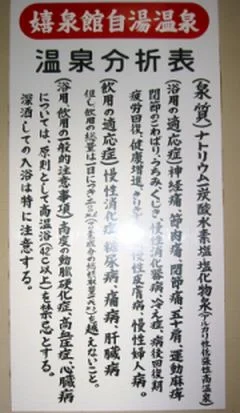 嬉泉館自湯温泉
温泉分析表
(泉質)ナトリウム(炭酸水素塩・塩化物泉(アルカリ性低張性高温泉)
(浴用の適応症)神経痛、筋肉痛、関節痛、五十肩、運動麻痺
関節のこわばり、うちみ、くじき、慢性消化器病、冷え症、病後回復期
疲労回復、健康増進、きりきず、慢性皮膚病、慢性婦人病。
(飲用の適応症)慢性消化症、糖尿病、痛病、肝臓病
但し飲用の総量は一日につき を越えないこと。
(浴用、飲用の一般的注意事項)高度の動脈硬化症、高血圧症、心臓病
については、原則として高温浴(42℃以上)を禁忌とする。
深酒しての入浴は特に注意する。